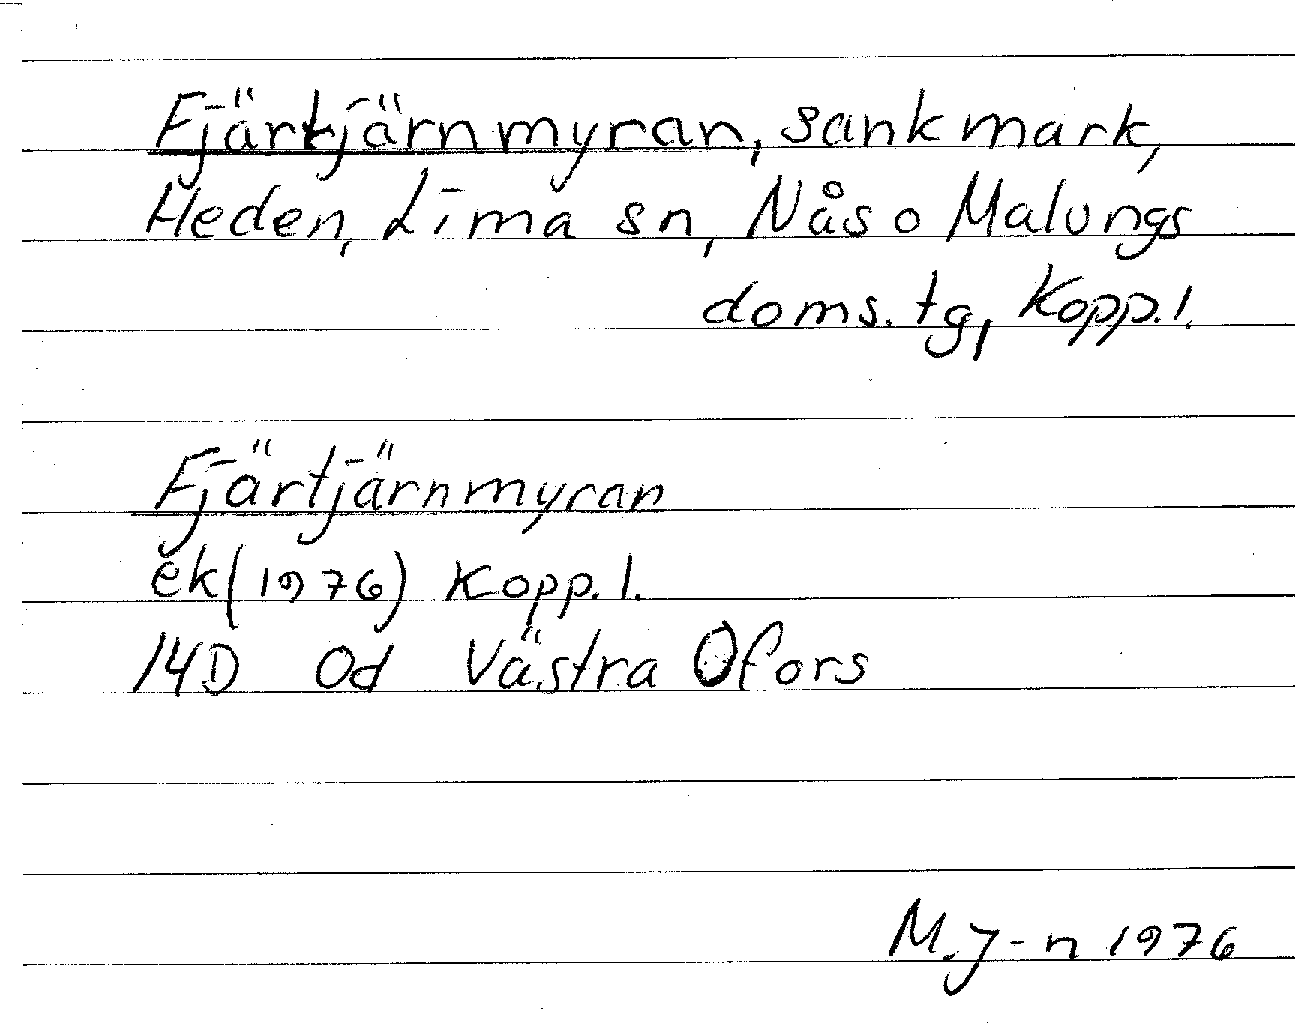 Fjärtjärnmyran, sankmark,
Heden, Lima sn, Nås o Malungs
doms.tg, Kopp.l.
Fjärtjärnmyran
ek(1976) Kopp.l.
14D 0d Västra Ofors
M.J-n 1976